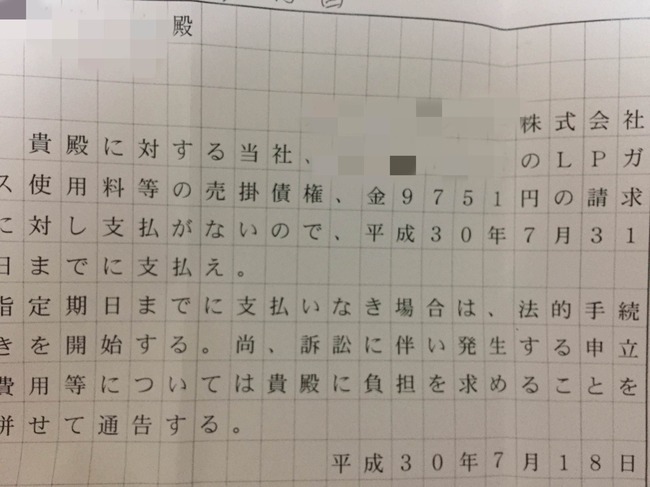 殿
株式会社
貴殿に対する当社、のLPガ
ス使用料等の売掛債権、金9751円の請求
に対し支払がないので、平成30年7月31
日までに支払え。
指定期日までに支払いなき場合は、法的手続
きを開始する。尚、訴訟に伴い発生する申立
費用等については貴殿に負担を求めることを
併せて通告する。
平成30年7月18日